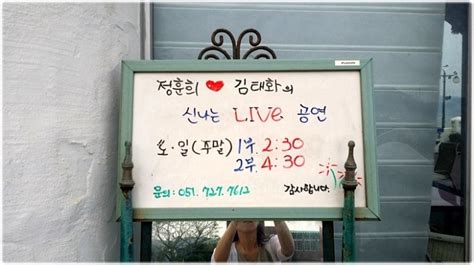 정훈희 ♥ 김태화의
신나는 LIVE 공연
토·일(주말) 1부 2:30
2부 4:30
문의 : 051. 727. 7612 감사합니다.